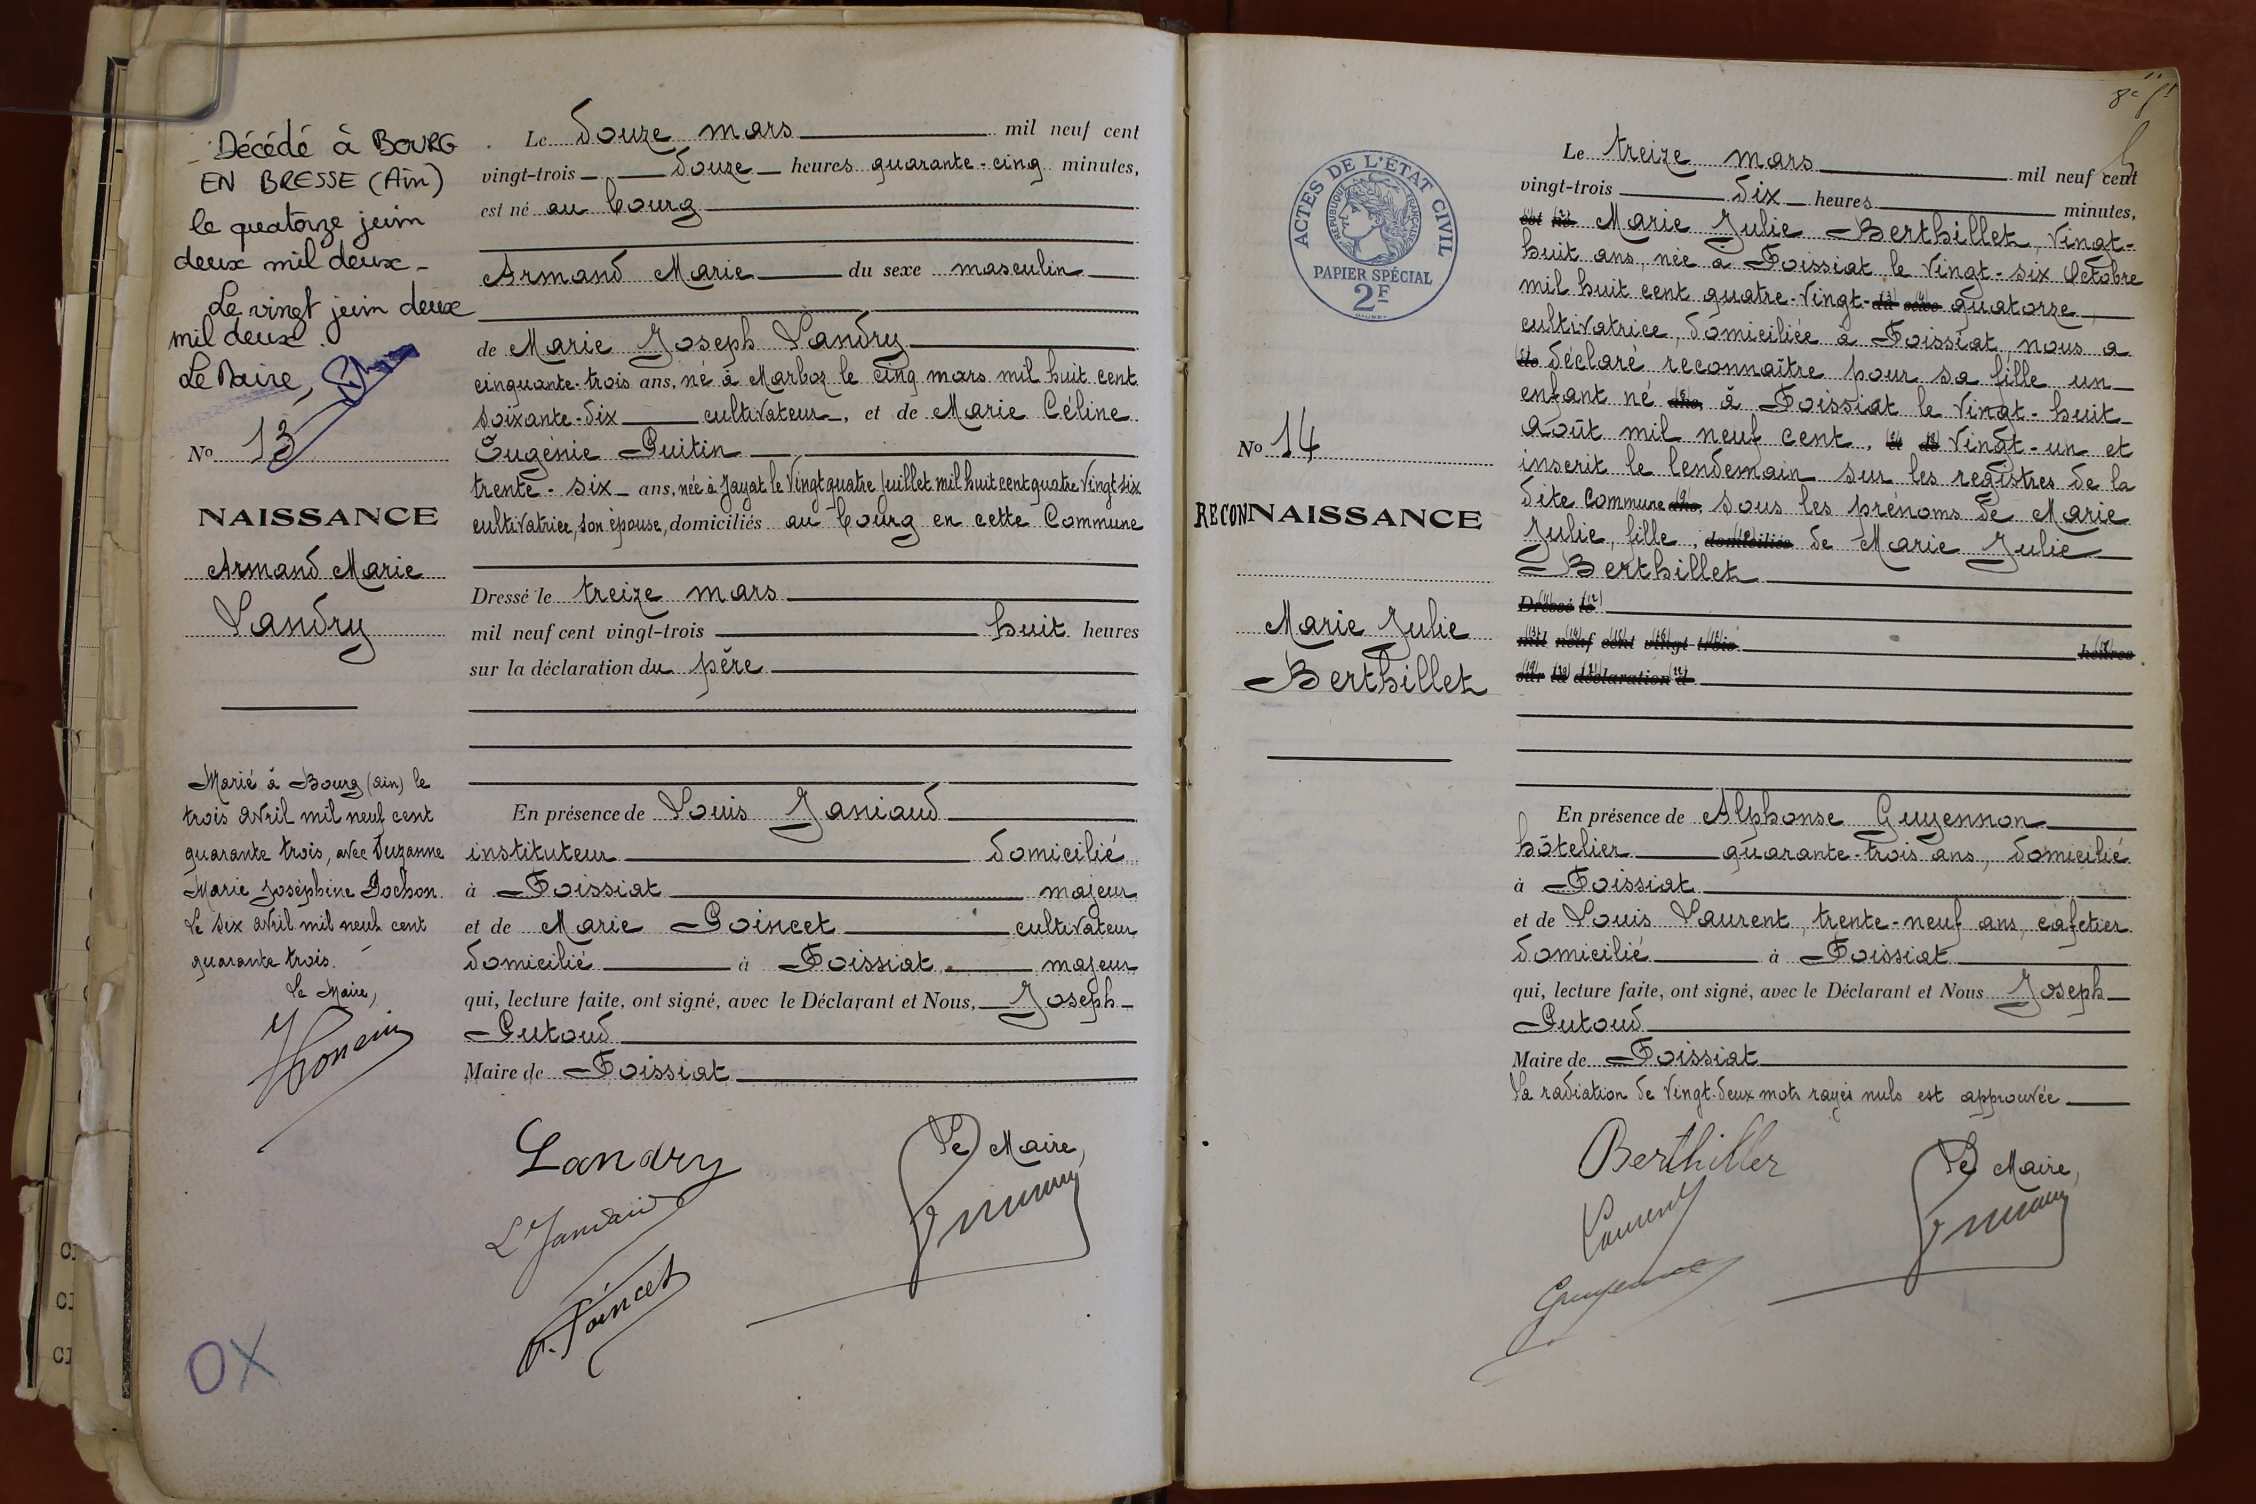 Décédé à BOURG
EN BRESSE (Ain)
le quatorze juin
deux mil deux_
Le vingt juin deux
mil deux.
Le Maire,
No 13
NAISSANCE
Armand Marie
Landry
Marié à Bourg (ain) le
trois avril mil neuf cent
quarante trois, avec Suzanne
Marie Joséphine Bochon.
Le six avril mil neuf cent
quarante trois.
Le Maire,
OX
Le douze mars mil neuf cent
vingt-trois douze heures quarante-cinq minutes,
est né au bourg
Armand Marie du sexe masculin
de Marie Joseph Landry
cinquante-trois ans, né à Marboz le cinq mars mil huit cent
soixante-dix cultivateur, et de Marie Céline
Eugénie Guitin
trente-six ans, née à Jayat le vingt quatre juillet mil huit cent quatre vingt six
cultivatrice, son épouse, domiciliés au bourg en cette Commune
Dressé le treize mars
mil neuf cent vingt-trois huit heures
sur la déclaration du père
En présence de Louis Janiaud
instituteur domicilié
à Foissiat majeur
et de Marie Poincet cultivateur
domicilié à Foissiat majeur
qui, lecture faite, ont signé, avec le Déclarant et Nous, Joseph
Putoud
Maire de Foissiat
Landry
Le Maire,
L Janiaud
Poincet
8e ft
ACTES DE L'ÉTAT CIVIL
RÉPUBLIQUE FRANÇAISE
PAPIER SPÉCIAL
2F
No 14
RECONNAISSANCE
Marie Julie
Berthillet
Le treize mars mil neuf cent
vingt-trois dix heures minutes,
est né Marie Julie Berthillet, vingt-
huit ans, née à Foissiat le vingt-six Octobre
mil huit cent quatre-vingt- du sexe quatorze,
cultivatrice, domiciliée à Foissiat, nous a
de déclaré reconnaître pour sa fille un
enfant né ans, à Foissiat le vingt-huit
août mil neuf cent, et de vingt-un et
inscrit le lendemain sur les registres de la
dite Commune ans, sous les prénoms de Marie
Julie, fille, domiciliés de Marie Julie
Berthillet
Dressé le
mil neuf cent vingt-trois heures
sur la déclaration d
En présence de Alphonse Guyennon
hôtelier quarante-trois ans, domicilié
à Foissiat
et de Louis Laurent, trente-neuf ans, cafetier
domicilié à Foissiat
qui, lecture faite, ont signé, avec le Déclarant et Nous Joseph
Putoud
Maire de Foissiat
La radiation de vingt-deux mots rayés nuls est approuvée
Berthillet
Le Maire,
Laurent
Guyennon